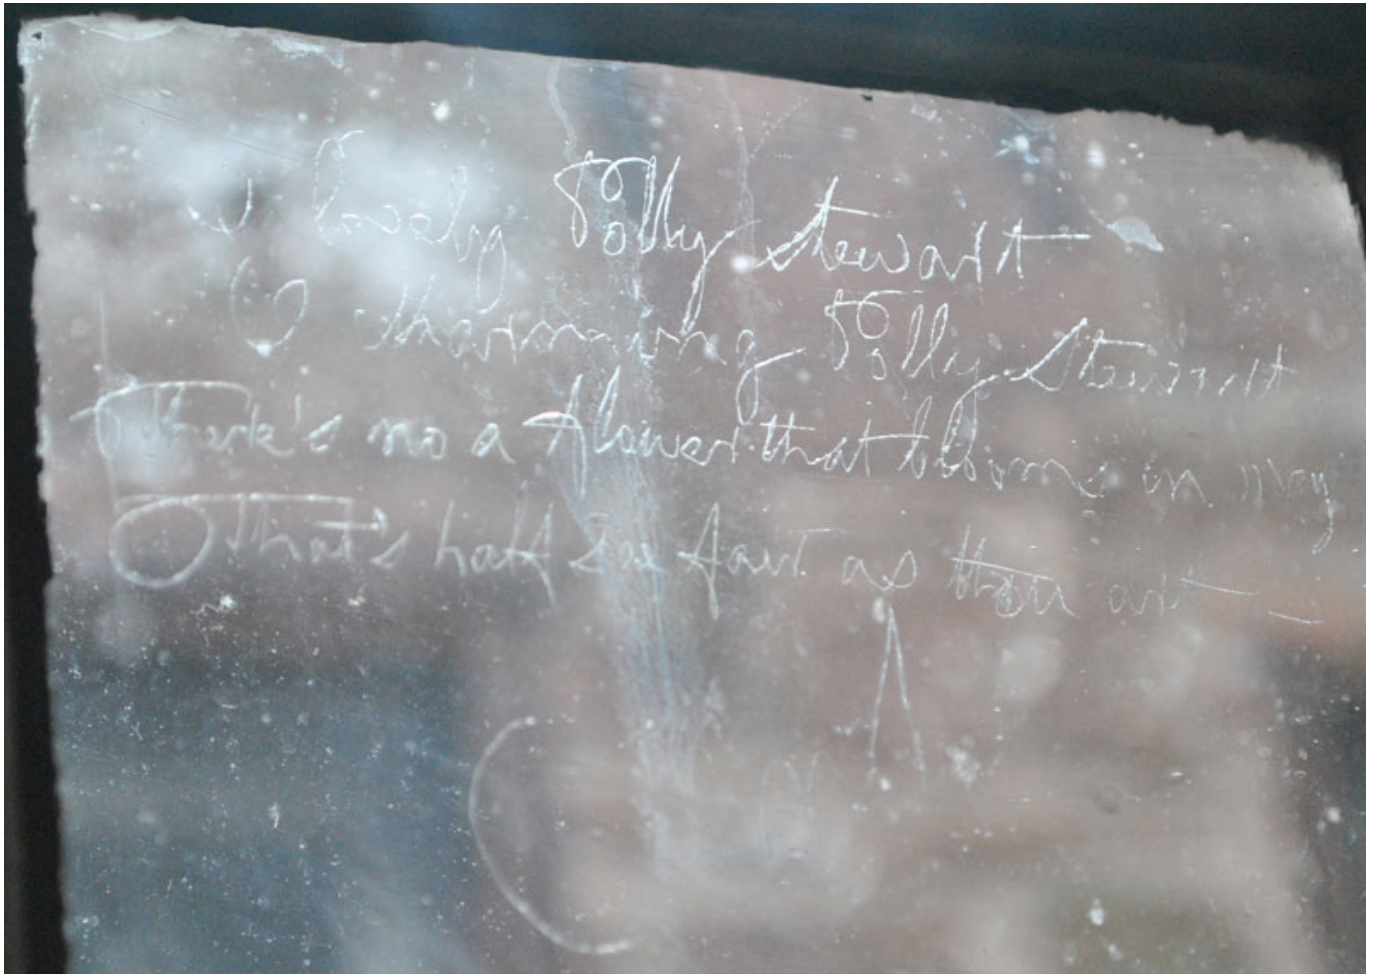 O lovely Polly Stewart
O charming Polly Stewart
There's no a flower that blooms in May
That's half so fair as thou art